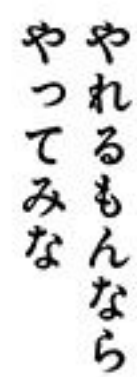 やれるもんなら
やってみな